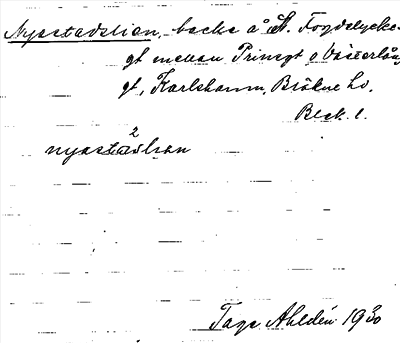 Nystadslian, backe å St. Fogdelycke-
gt mellan Prinsgt o Västerlång
gt, Karlshamn, Bräkne hd.
Blek. l.
2
nystadslian
Tage Ahldén 1930